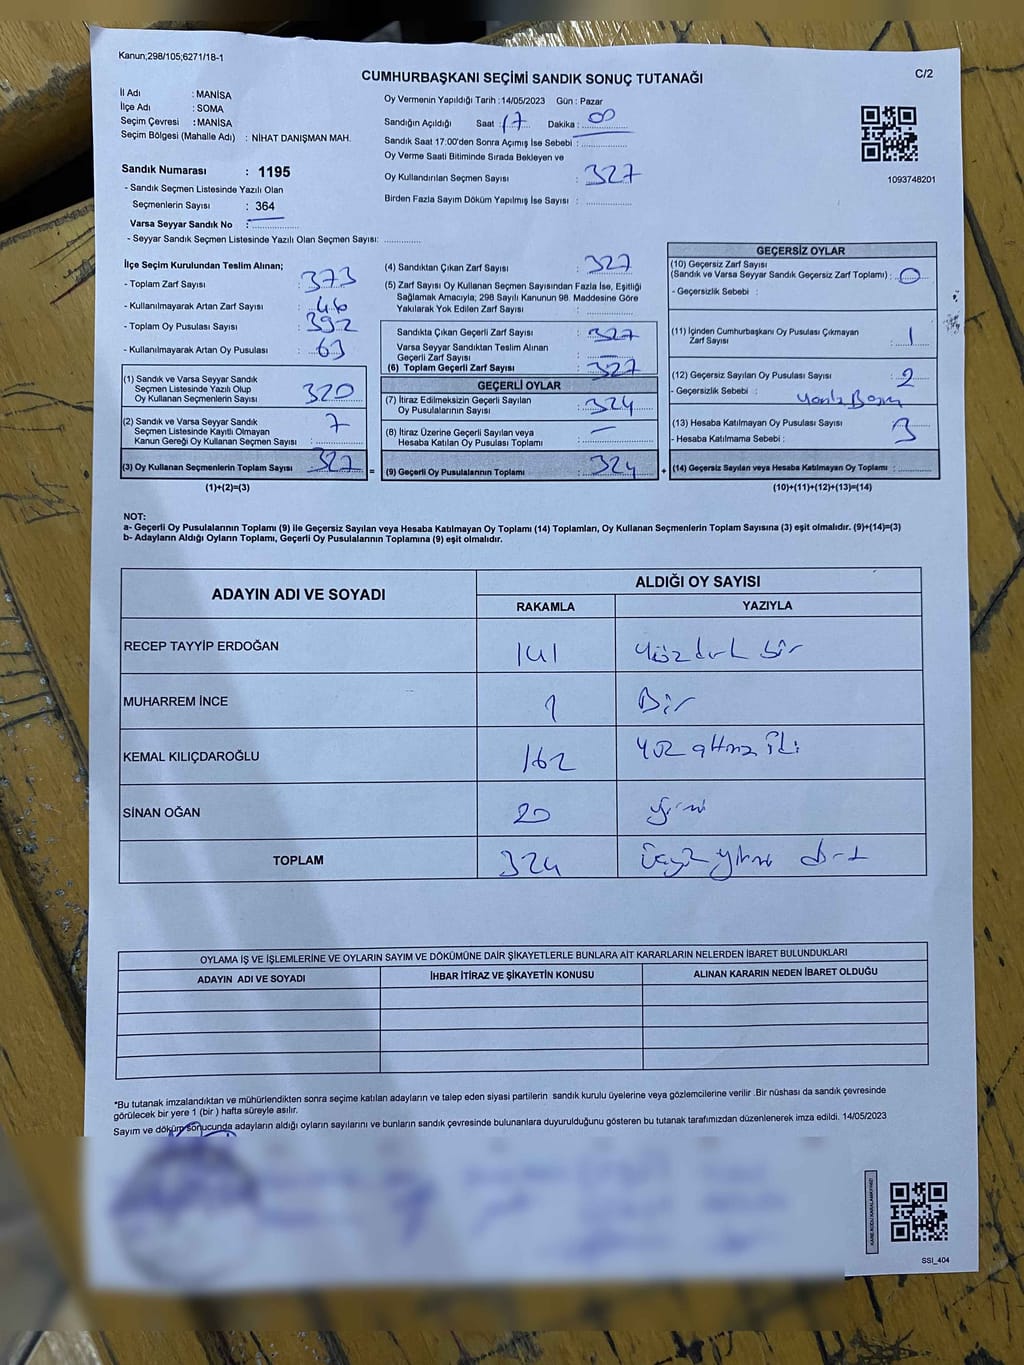 Kanun;298/105;6271/18-1
CUMHURBAŞKANI SEÇİMİ SANDIK SONUÇ TUTANAĞI
C/2
İl Adı : MANİSA
İlçe Adı : SOMA
Seçim Çevresi : MANİSA
Seçim Bölgesi (Mahalle Adı) : NİHAT DANIŞMAN MAH.
Sandık Numarası : 1195
- Sandık Seçmen Listesinde Yazılı Olan
Seçmenlerin Sayısı : 364
Varsa Seyyar Sandık No : —
- Seyyar Sandık Seçmen Listesinde Yazılı Olan Seçmen Sayısı: ............
Oy Vermenin Yapıldığı Tarih : 14/05/2023 Gün : Pazar
Sandığın Açıldığı Saat : 17 Dakika : 00
Sandık Saat 17:00'den Sonra Açımış İse Sebebi : ............
Oy Verme Saati Bitiminde Sırada Bekleyen ve
Oy Kullandırılan Seçmen Sayısı : 327
Birden Fazla Sayım Döküm Yapılmış İse Sayısı : ............
1093748201
İlçe Seçim Kurulundan Teslim Alınan;
- Toplam Zarf Sayısı : 373
- Kullanılmayarak Artan Zarf Sayısı : 46
- Toplam Oy Pusulası Sayısı : 392
- Kullanılmayarak Artan Oy Pusulası : 63
(1) Sandık ve Varsa Seyyar Sandık
Seçmen Listesinde Yazılı Olup
Oy Kullanan Seçmenlerin Sayısı : 320
(2) Sandık ve Varsa Seyyar Sandık
Seçmen Listesinde Kayıtlı Olmayan
Kanun Gereği Oy Kullanan Seçmen Sayısı : 7
(3) Oy Kullanan Seçmenlerin Toplam Sayısı : 327
(1)+(2)=(3)
=
(4) Sandıktan Çıkan Zarf Sayısı : 327
(5) Zarf Sayısı Oy Kullanan Seçmen Sayısından Fazla İse, Eşitliği
Sağlamak Amacıyla; 298 Sayılı Kanunun 98. Maddesine Göre
Yakılarak Yok Edilen Zarf Sayısı : ............
Sandıkta Çıkan Geçerli Zarf Sayısı : 327
Varsa Seyyar Sandıktan Teslim Alınan
Geçerli Zarf Sayısı : —
(6) Toplam Geçerli Zarf Sayısı : 327
GEÇERLİ OYLAR
(7) İtiraz Edilmeksizin Geçerli Sayılan
Oy Pusulalarının Sayısı : 324
(8) İtiraz Üzerine Geçerli Sayılan veya
Hesaba Katılan Oy Pusulası Toplamı : —
(9) Geçerli Oy Pusulalarının Toplamı : 324
+
GEÇERSİZ OYLAR
(10) Geçersiz Zarf Sayısı
(Sandık ve Varsa Seyyar Sandık Geçersiz Zarf Toplamı) : 0
- Geçersizlik Sebebi : ............
(11) İçinden Cumhurbaşkanı Oy Pusulası Çıkmayan
Zarf Sayısı : 1
(12) Geçersiz Sayılan Oy Pusulası Sayısı : 2
- Geçersizlik Sebebi :
(13) Hesaba Katılmayan Oy Pusulası Sayısı : 3
- Hesaba Katılmama Sebebi :
(14) Geçersiz Sayılan veya Hesaba Katılmayan Oy Toplamı : ............
(10)+(11)+(12)+(13)=(14)
NOT:
a- Geçerli Oy Pusulalarının Toplamı (9) ile Geçersiz Sayılan veya Hesaba Katılmayan Oy Toplamı (14) Toplamları, Oy Kullanan Seçmenlerin Toplam Sayısına (3) eşit olmalıdır. (9)+(14)=(3)
b- Adayların Aldığı Oyların Toplamı, Geçerli Oy Pusulalarının Toplamına (9) eşit olmalıdır.
ADAYIN ADI VE SOYADI ALDIĞI OY SAYISI
RAKAMLA YAZIYLA
RECEP TAYYİP ERDOĞAN 141 yüzkırk bir
MUHARREM İNCE 1 Bir
KEMAL KILIÇDAROĞLU 162 yüz altmış iki
SİNAN OĞAN 20 yirmi
TOPLAM 324 üçyüz yirmi dört
OYLAMA İŞ VE İŞLEMLERİNE VE OYLARIN SAYIM VE DÖKÜMÜNE DAİR ŞİKAYETLERLE BUNLARA AİT KARARLARIN NELERDEN İBARET BULUNDUKLARI
ADAYIN ADI VE SOYADI İHBAR İTİRAZ VE ŞİKAYETİN KONUSU ALINAN KARARIN NEDEN İBARET OLDUĞU
*Bu tutanak imzalandıktan ve mühürlendikten sonra seçime katılan adayların ve talep eden siyasi partilerin sandık kurulu üyelerine veya gözlemcilerine verilir .Bir nüshası da sandık çevresinde
görülecek bir yere 1 (bir ) hafta süreyle asılır.
Sayım ve döküm sonucunda adayların aldığı oyların sayılarını ve bunların sandık çevresinde bulunanlara duyurulduğunu gösteren bu tutanak tarafımızdan düzenlenerek imza edildi. 14/05/2023
KARE KODU KARALAMAYINIZ!
SSI_404